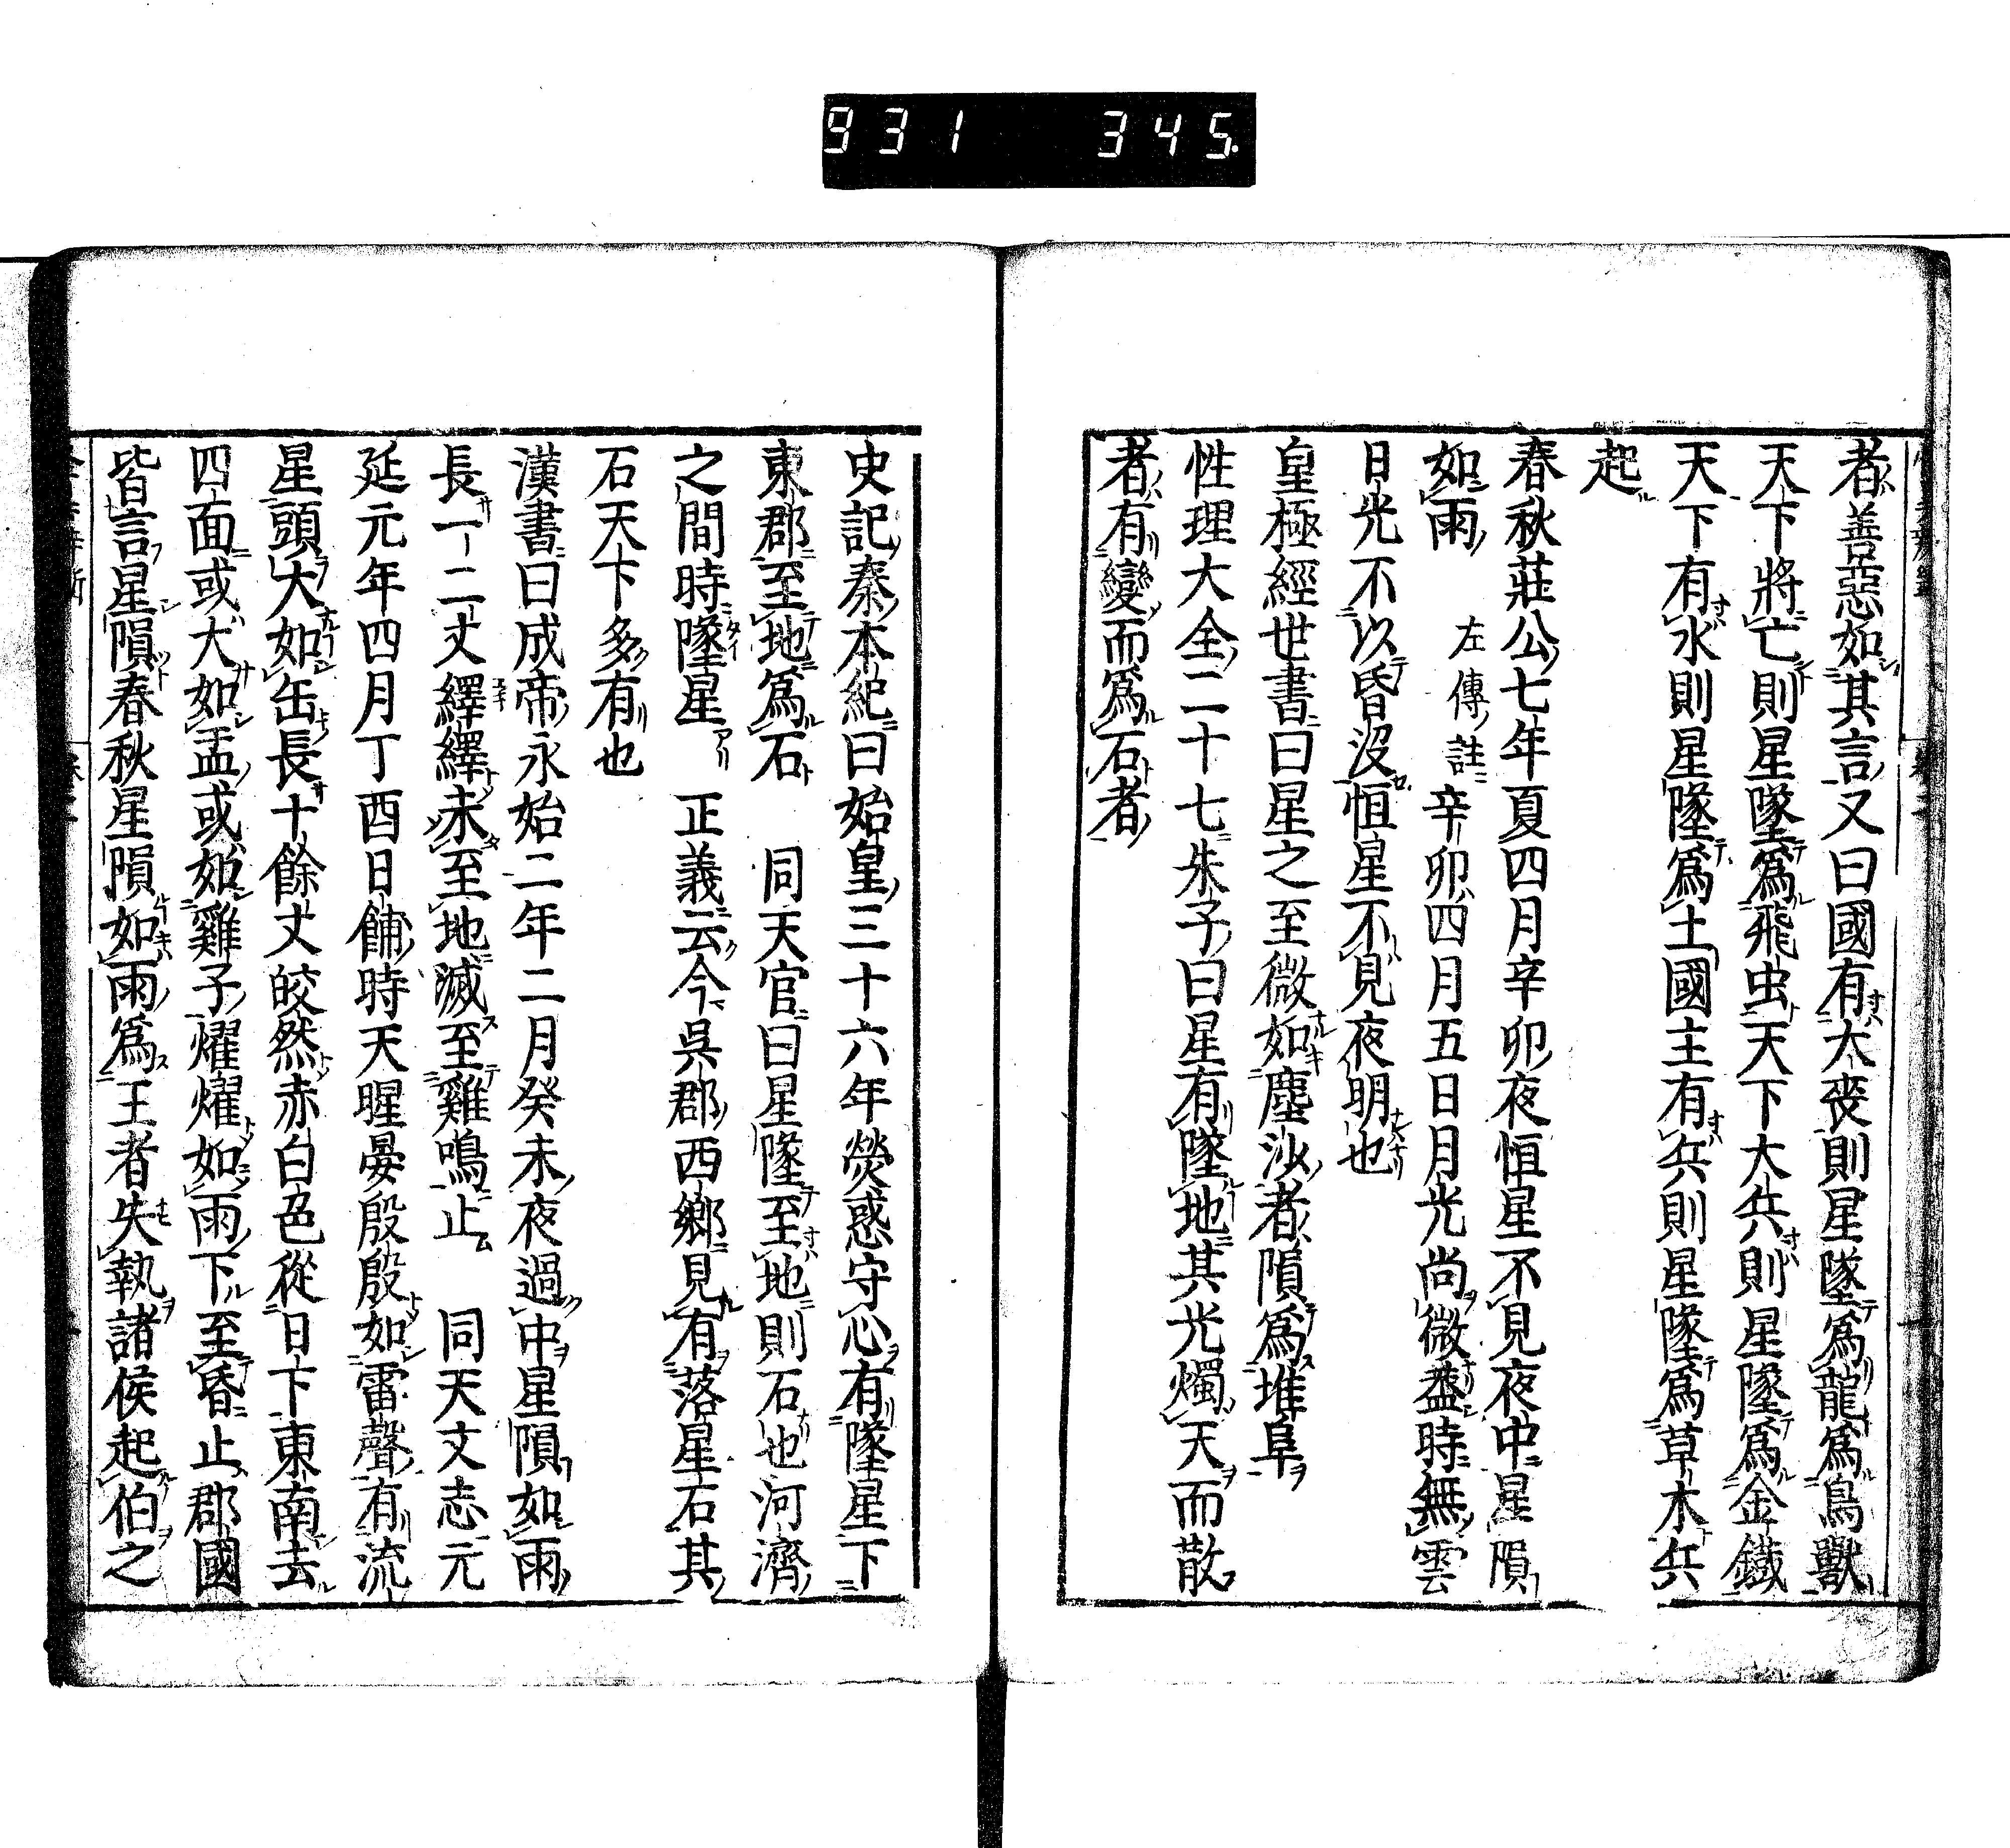 931 345.
者善惡如其言又曰國有大喪則星墜爲龍爲鳥獸
天下將亡則星墜爲飛虫天下大兵則星墜爲金鐵
天下有水則星墜爲土國主有兵則星墜爲草木兵
起
春秋莊公七年夏四月辛卯夜恒星不見夜中星隕
如雨　左傳註辛卯四月五日月光尚微盖時無雲
日光不以昏沒恒星不見夜明也
皇極經世書曰星之至微如塵沙者隕爲堆阜
性理大全二十七朱子曰星有墜地其光燭天而散
者有變而爲石者
史記秦本紀曰始皇三十六年熒惑守心有墜星下
東郡至地爲石　同天官曰星墜至地則石也河濟
之間時墜星　正義云今吳郡西鄉見有落星石其
石天下多有也
漢書曰成帝永始二年二月癸未夜過中星隕如雨
長一二丈繹繹未至地滅至雞鳴止　同天文志元
延元年四月丁酉日餔時天暒晏殷殷如雷聲有流
星頭大如缶長十餘丈皎然赤白色從日下東南去
四面或大如盂或如雞子燿燿如雨下至昏止郡國
皆言星隕春秋星隕如雨爲王者失執諸侯起伯之